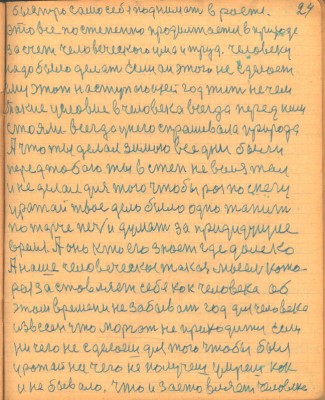 24
быстро само себя поднимать в росте.
это все постепенно продолжается в природе
за счет человеческого ума и труд. человеку
надо было делать если он этого не сделает
ему этот наступающей год жить не чем
такие условие в человека всегда перед ним
стояли всегда у него спрашивала природа
А что ты делал зимою все дни были
перед тобою ты в степ не выезжал
и не делал для того чтобы рос по снегу
урожай твое дело было одно топить
по жарче печ и думат за придидущие
время. А оно кто его знает где далеко
А наше человеческое такая мысел кото-
рая заставляет себя как человека об
этом времени не забыват год для человека
известен что может не приходити если
ни чего не сделаеш для того чтобы был
урожай на чего не получеш умреш как
и не бывало. что и заставляет человека